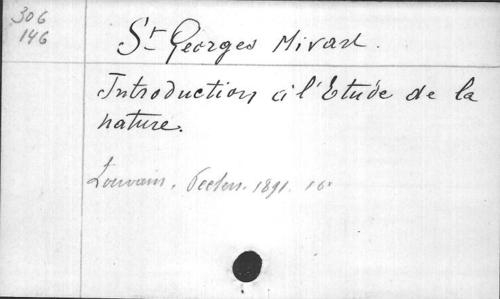 306
146
St Georges Mivart.
Introduction à l'Etude de la
nature.
Louvain. Peeters. 1891. 16°